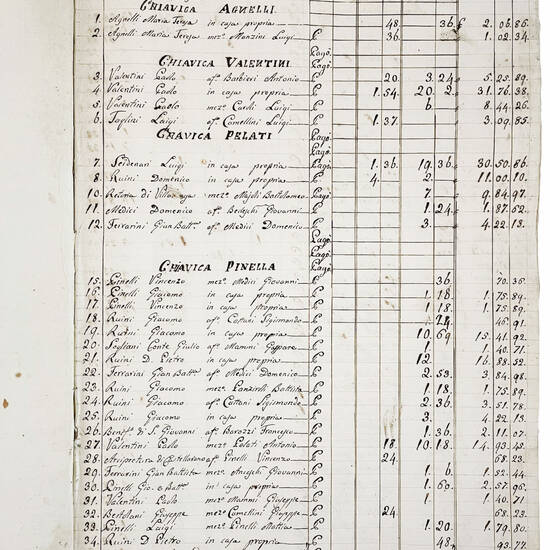 CHIAVICA AGNELLI
1. Agnelli Maria Teresa in casa propria 48 36 £ 2. 06. 86.
2. Agnelli Maria Teresa mez.º Manzini Luigi £ 36 1. 02. 34.
Pagò
CHIAVICA VALENTINI Pagò
3. Valentini Paolo af.º Barbieri Antonio £ 20. 3. 24. 5. 25. 89.
4. Valentini Paolo in casa propria £ 1. 54. 20. 2. 31. 76. 38.
5. Valentini Paolo mez.º Luigi £ 6 8. 44. 26.
6. Luigi af.º Camellini Luigi £ 1. 37. 3. 09. 85.
CHIAVICA PELATI Pagò
Pagò
7. Luigi in casa propria Pagò 1. 36. 19. 36. 30. 50. 86.
8. Ruini Domenico in casa propria £ 4. 2. 11. 00. 10.
10. di mez.º Bartolomeo Pagò 7. 9. 84. 97.
11. Medici Domenico af.º Bedeschi Giovanni £ 1. 24. 1. 87. 62.
12. Ferrarini Gian Batt.ª af.º Medici Domenico £ 3. 4. 22. 13.
Pagò
Pagò
CHIAVICA PINELLA Pagò
15. Pinelli Vincenzo mez.º Medici Giovanni £ 36. 70. 36.
16. Pinelli Giacomo in casa propria £ 1. 18. 1. 75. 89.
17. Pinelli Vincenzo in casa propria £ 1. 18. 1. 75. 89.
18. Ruini Giacomo af.º Sigismondo £ 24. 46. 91.
19. Ruini Giacomo in casa propria £ 10. 69. 15. 41. 92.
20. Sogliani Conte Giulio af.º Mamini Gaspare £ 1. 1. 40. 71.
21. Ruini D. Pietro in casa propria £ 12. 16. 88. 52.
22. Ferrarini Gian Batt.ª af.º Medici Domenico £ 2. 53. 3. 84. 98.
23. Ruini Giacomo mez.º Battista £ 1. 18. 1. 75. 89.
24. Ruini Giacomo af.º Sigismondo £ 2. 36. 3. 51. 78.
25. Ruini Giacomo in casa propria £ 3. 4. 22. 13.
26. di S. Giovanni af.º Barozzi Francesco £ 1. 36. 2. 11. 07.
27. Valentini Paolo mez.º Pelati Antonio £ 18. 10. 18. 14. 93. 43.
28. Arcipretura di Castellarano af.º Pinelli Vincenzo £ 24. 68. 23.
29. Ferrarini Gian Battista mez.º Giovanni £ 1. 6. 1. 52. 44.
30. Pinelli Gio. Batt.ª in casa propria £ 1. 69. 2. 57. 96.
31. Valentini Paolo mez.º Mammi Giuseppe £ 1. 1. 40. 71
32. Bertolani Giuseppe mez.º Camellini Giuseppe £ 24 68. 23.
33. Pinelli Luigi mez.º Pinelli Mattia £ 1. 20. 1. 79. 80.
34. Ruini D. Pietro in casa propria £ 48. 93. 77.